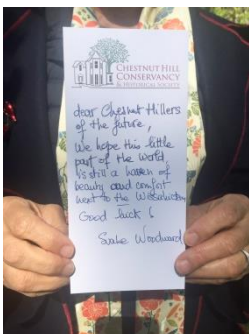 CHESTNUT HILL
CONSERVANCY
& HISTORICAL SOCIETY
dear Chestnut Hillers
of the future,
we hope this little
part of the world,
is still a haven of
beauty and comfort
next to the Wissahickon
Good luck!
Woodward